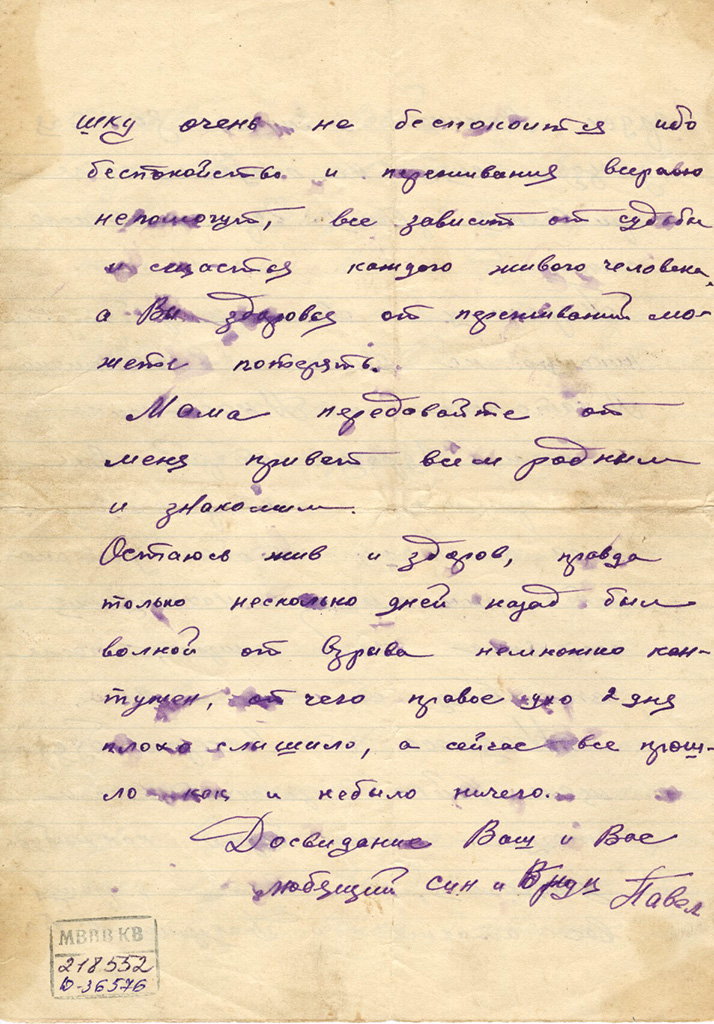 шку очень не беспокоится ибо
беспокойство и переживания всеравно
непомогут, все зависит от судьбы
и счастья каждого живого человека,
а Вы здоровья от переживаний мо-
жете потерять.
Мама передавайте от
меня привет всем родным
и знакомым.
Остаюсь жив и здоров, правда
только несколько дней назад был
волной от взрыва немножко кон-
тужен, от чего правое ухо 2 дня
плохо слышило, а сейчас все прош-
ло как и небыло ничего.
Досвидание Ваш и Вас
любящий син и Внук Павел
МВВВКВ
218552
Ю-36576